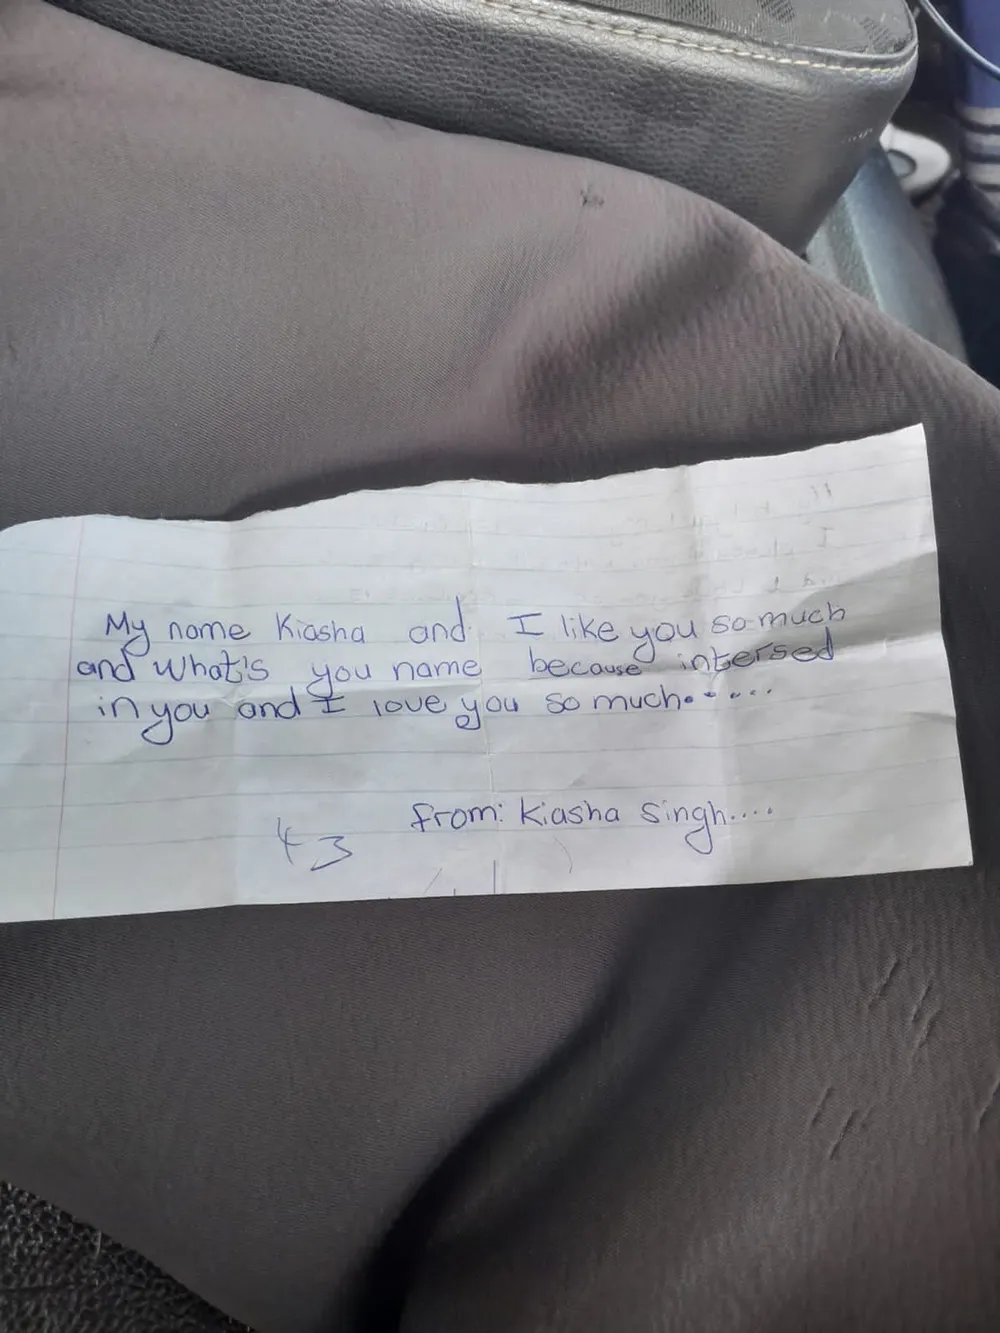 My name Kiasha and I like you so much
and what's you name because intersed
in you and I love you so much......
from: Kiasha Singh....
43